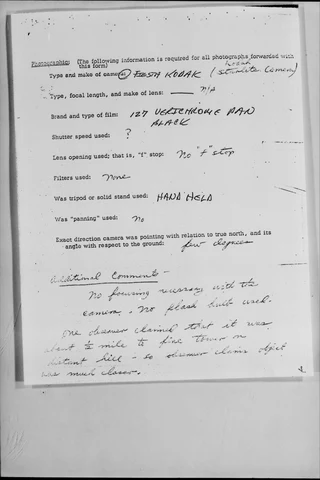 Photographic: (The following information is required for all photographs forwarded with
this form)
Type and make of camera: FIESTA KODAK (Brownie Camera)
Type, focal length, and make of lens: —— N/A
Brand and type of film: 127 VERICHROME PAN
BLACK
Shutter speed used: ?
Lens opening used; that is, "f" stop: No "f" stop
Filters used: None
Was tripod or solid stand used: HAND HELD
Was "panning" used: No
Exact direction camera was pointing with relation to true north, and its
angle with respect to the ground: few degrees
Additional Comments -
No focusing necessary with the
camera. No flash bulb used.
One observer claimed that it was
about ½ mile to fire tower on
distant hill - so observer claims object
was much closer.